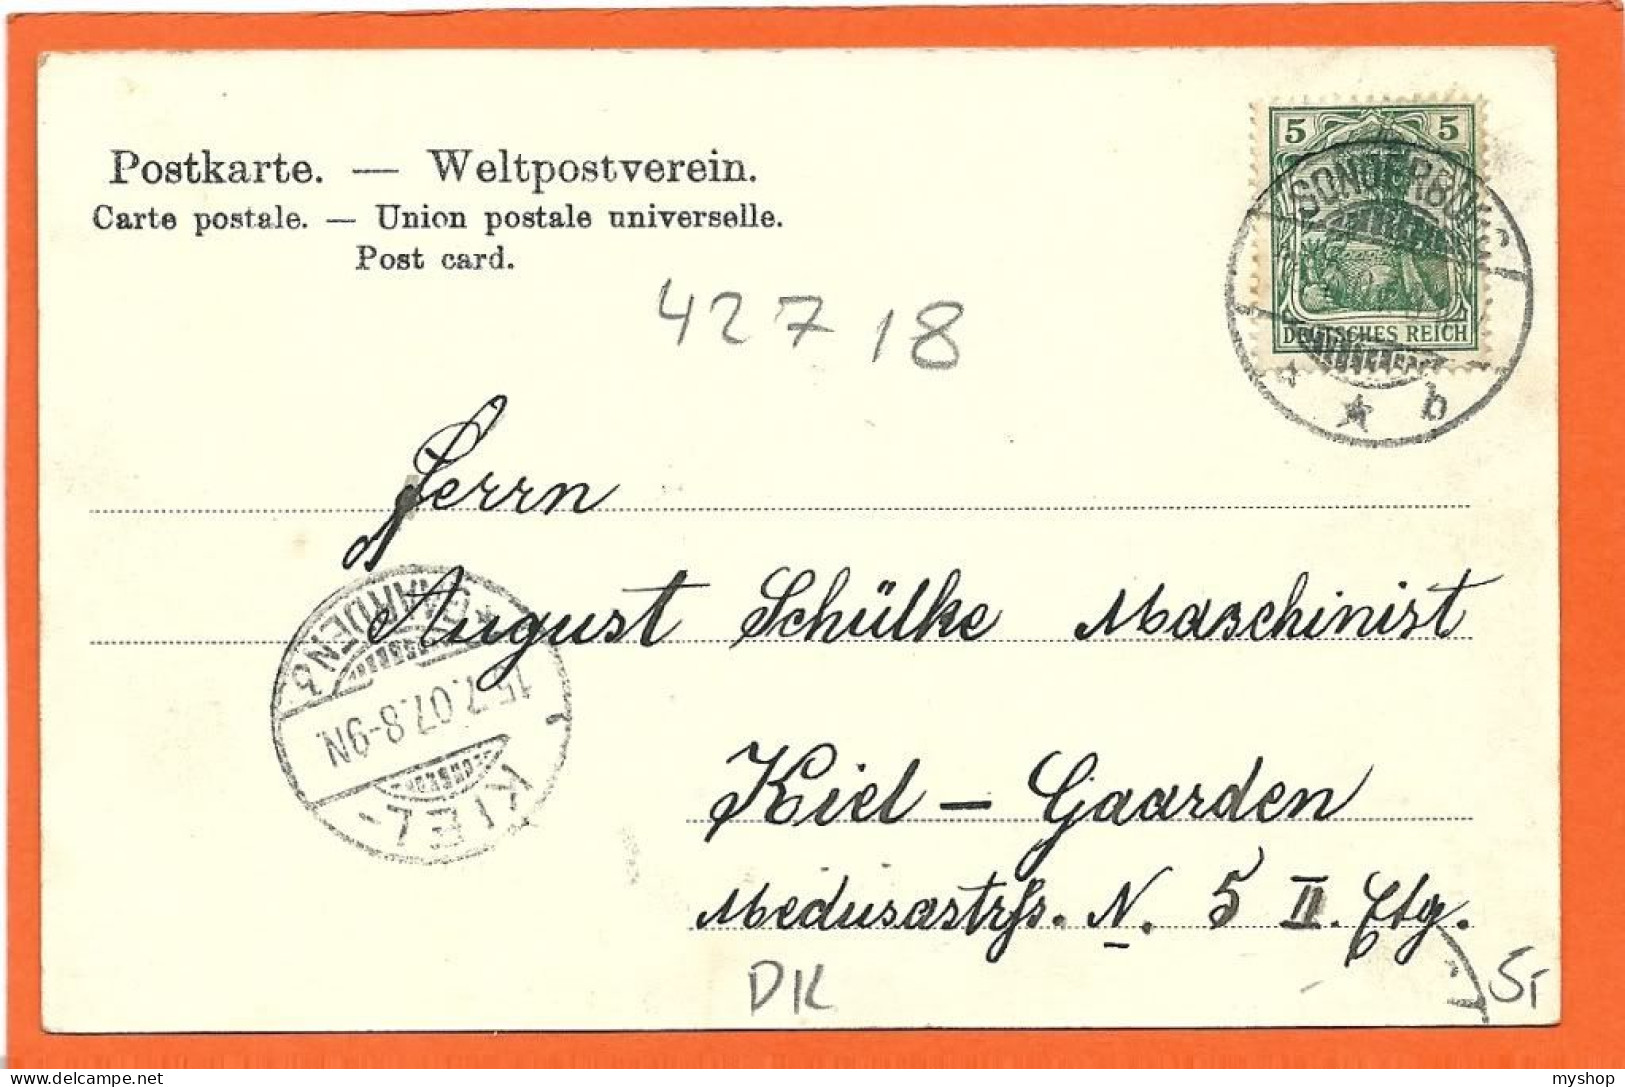 Postkarte. — Weltpostverein.
Carte postale. — Union postale universelle.
Post card.
5 5
DEUTSCHES REICH
SONDERBURG
* b
42718
Herrn
August Schülke Maschinist
Kiel - Gaarden
Medusastrs. N. 5 II. Etg.
KIEL-
GAARDEN b.
15.7.07.8-9N.
DK
myshop